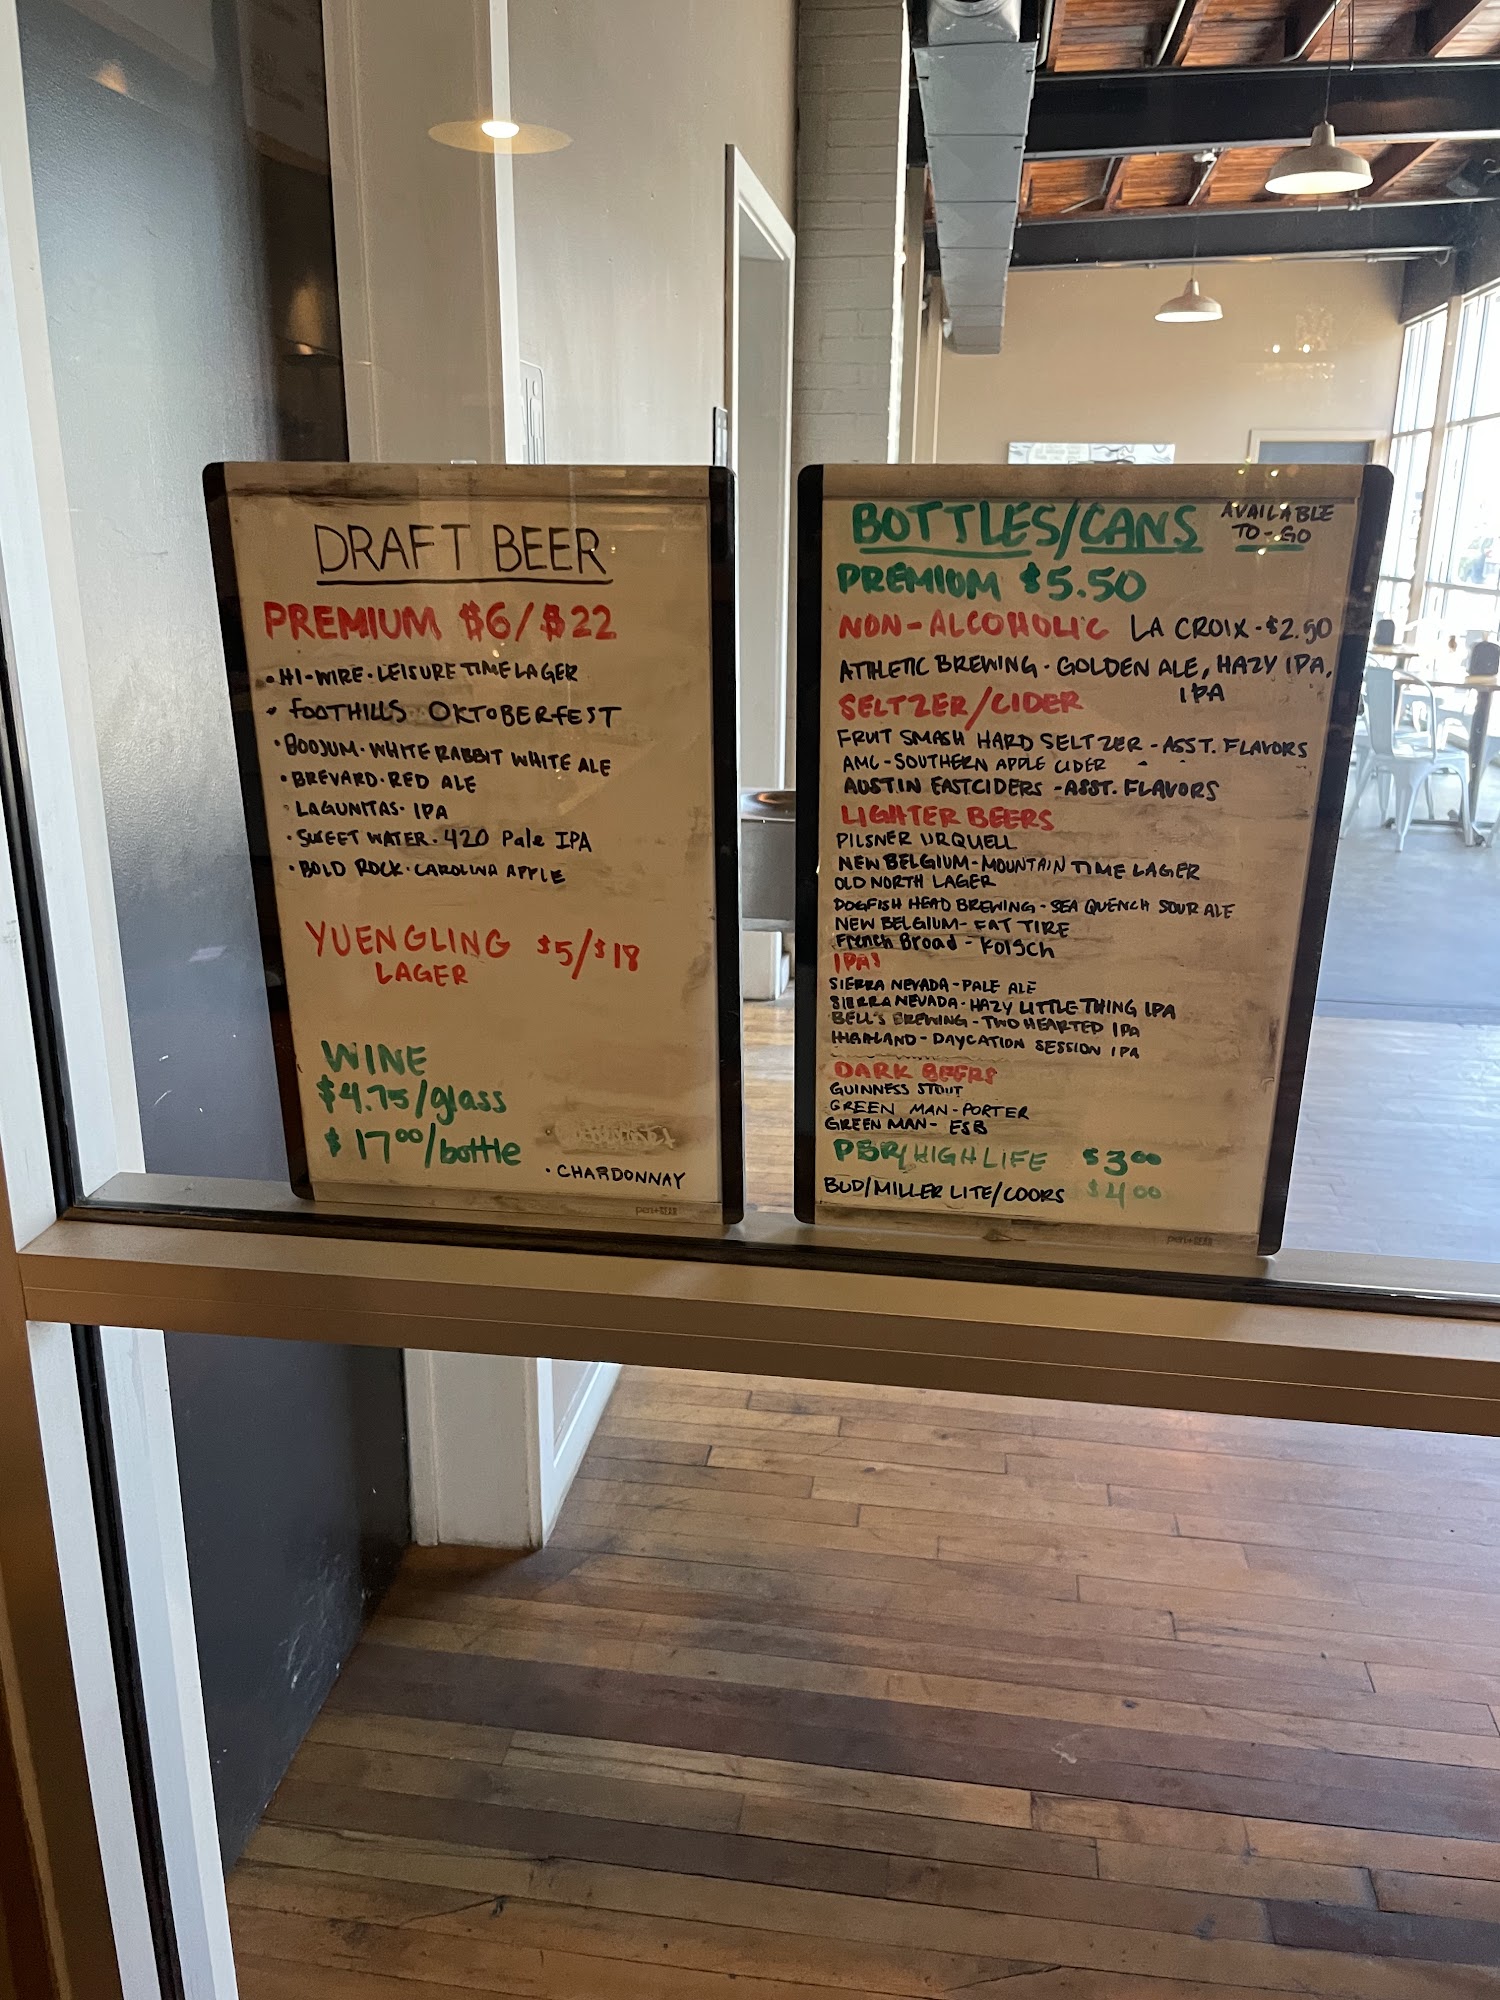 DRAFT BEER
PREMIUM $6/$22
• HI-WIRE • LEISURE TIME LAGER
• FOOTHILLS OKTOBERFEST
• BOOJUM • WHITE RABBIT WHITE ALE
• BREVARD • RED ALE
• LAGUNITAS • IPA
• SWEET WATER • 420 Pale IPA
• BOLD ROCK • CAROLINA APPLE
YUENGLING $5/$18
LAGER
WINE
$4.75/glass
$17.00/bottle
• CHARDONNAY
BOTTLES/CANS AVAILABLE
TO-GO
PREMIUM $5.50
NON-ALCOHOLIC LA CROIX - $2.50
ATHLETIC BREWING • GOLDEN ALE, HAZY IPA,
IPA
SELTZER/CIDER
FRUIT SMASH HARD SELTZER - ASST. FLAVORS
AMC - SOUTHERN APPLE CIDER
AUSTIN EASTCIDERS - ASST. FLAVORS
LIGHTER BEERS
PILSNER URQUELL
NEW BELGIUM - MOUNTAIN TIME LAGER
OLD NORTH LAGER
DOGFISH HEAD BREWING - SEA QUENCH SOUR ALE
NEW BELGIUM - FAT TIRE
French Broad - Kolsch
IPAS
SIERRA NEVADA - PALE ALE
SIERRA NEVADA - HAZY LITTLE THING IPA
BELL'S BREWING - TWO HEARTED IPA
HIGHLAND - DAYCATION SESSION IPA
DARK BEERS
GUINNESS STOUT
GREEN MAN - PORTER
GREEN MAN - ESB
PBR/HIGH LIFE $3.00
BUD/MILLER LITE/COORS $4.00